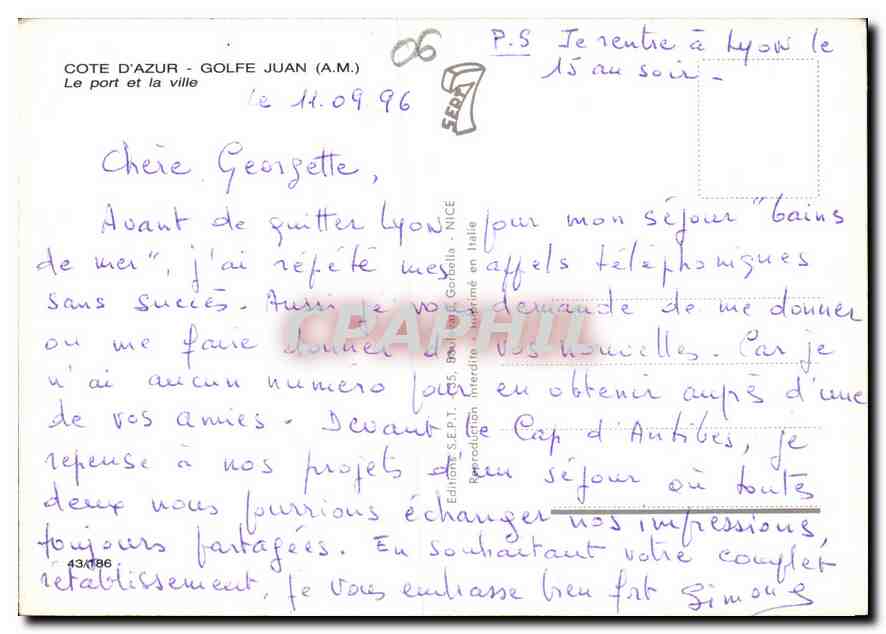 P.S Je rentre à Lyon le
15 au soir -
06
COTE D'AZUR - GOLFE JUAN (A.M.)
Le port et la ville
SEPT
le 11.09.96
Chère Georgette,
Avant de quitter Lyon pour mon séjour "bains
de mer", j'ai répété mes appels téléphoniques
sans succès. Aussi je vous demande de me donner
ou me faire donner de vos nouvelles. Car je
n'ai aucun numéro pour en obtenir auprès d'une
de vos amies. Devant le Cap d'Antibes, je
repense à nos projets d'un séjour où toutes
deux nous pourrions échanger nos impressions,
toujours partagées. En souhaitant votre complet
rétablissement, je vous embrasse bien fort Simone
43/186
Editions S.E.P.T. - 35, Boulevard Gorbella - NICE
Reproduction Interdite - Imprimé en Italie
CPAPHIL